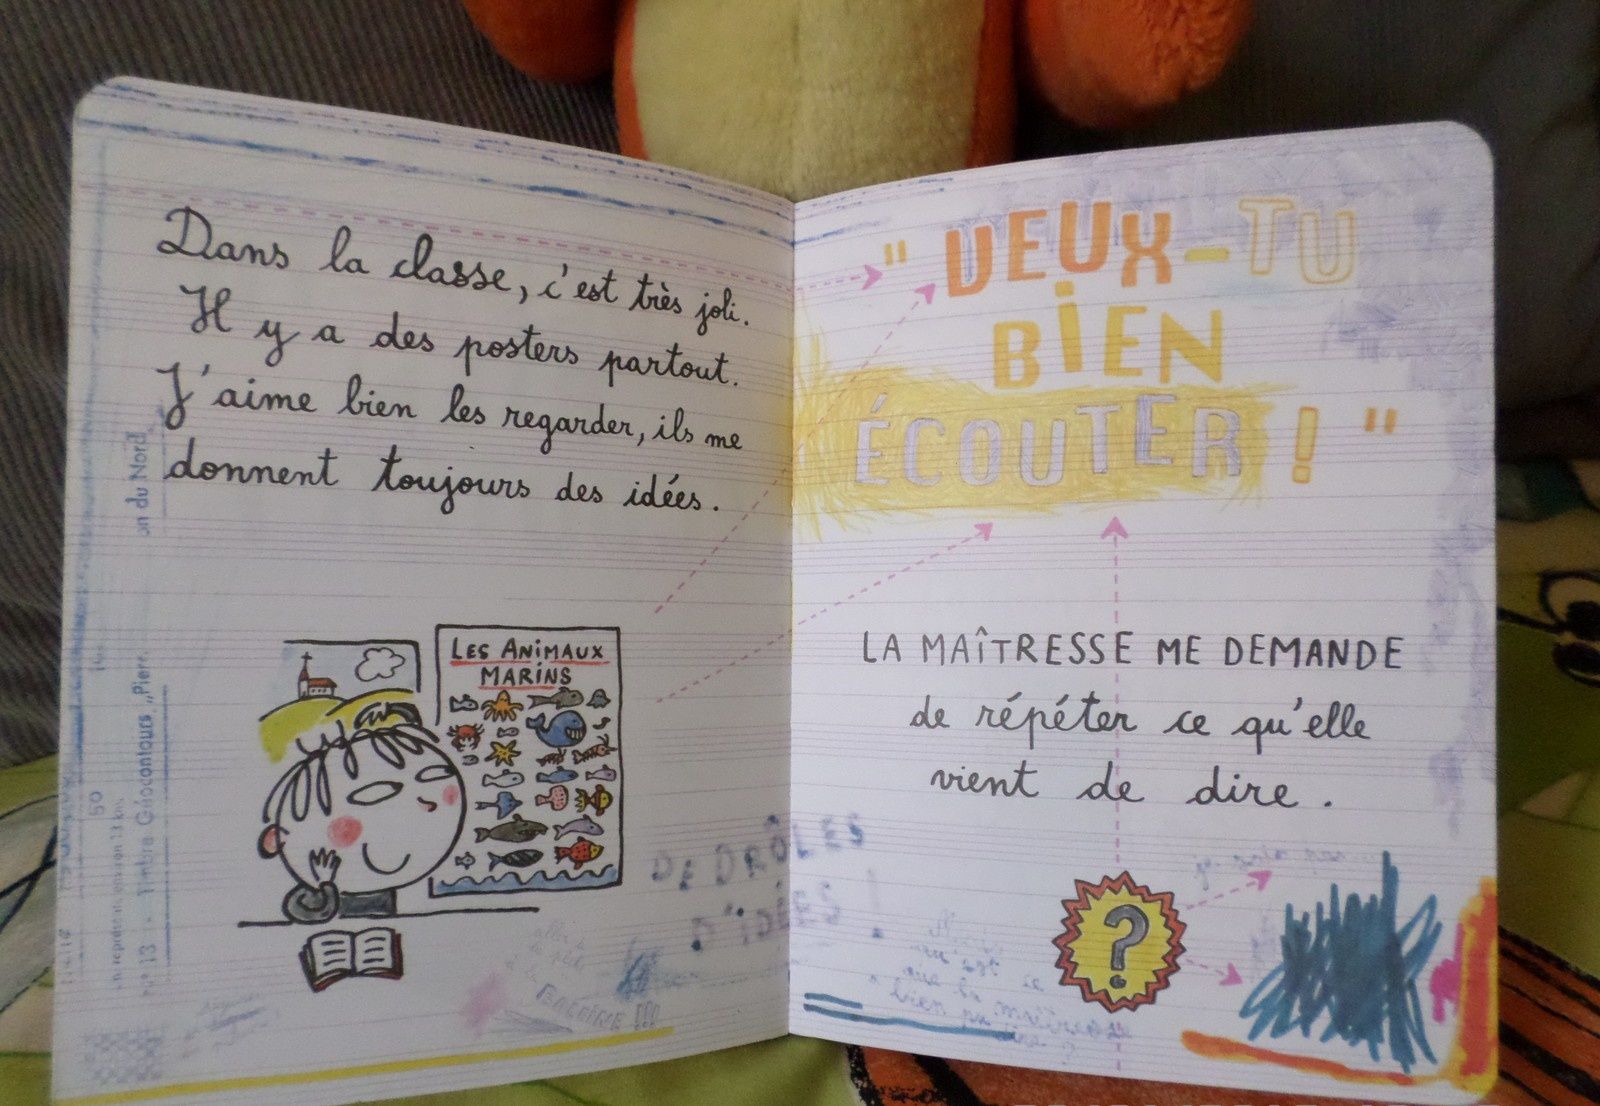 Dans la classe, c'est très joli.
Il y a des posters partout.
J'aime bien les regarder, ils me
donnent toujours des idées.
on du Nord
50
n° 13
Timbre Géocontours „Pierre
LES ANIMAUX
MARINS
DE DRÔLES
D'IDÉES !
BALEINE !!!
" VEUX-TU
BIEN
ÉCOUTER ! "
LA MAÎTRESSE ME DEMANDE
de répéter ce qu'elle
vient de dire.
?
que la maîtresse
a bien pu dire ?